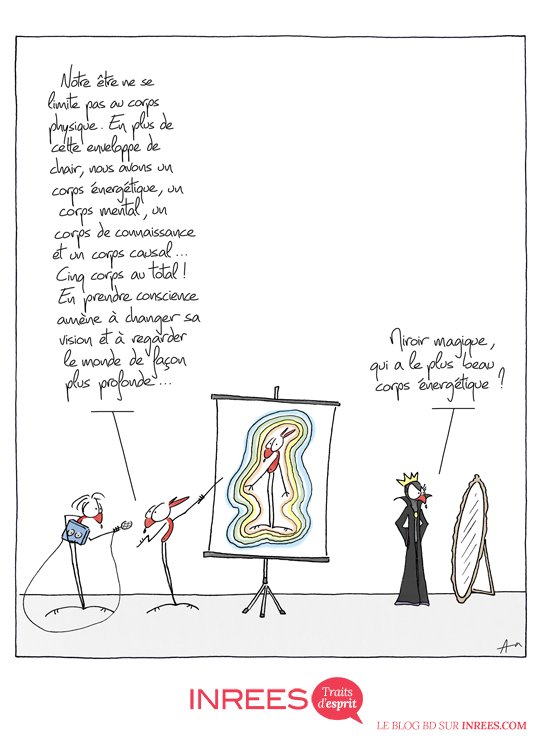 Notre être ne se
limite pas au corps
physique. En plus de
cette enveloppe de
chair, nous avons un
corps énergétique, un
corps mental, un
corps de connaissance
et un corps causal...
Cinq corps au total !
En prendre conscience
amène à changer sa
vision et à regarder
le monde de façon
plus profonde...
Miroir magique,
qui a le plus beau
corps énergétique ?
INREES
Traits
d'esprit
LE BLOG BD SUR INREES.COM